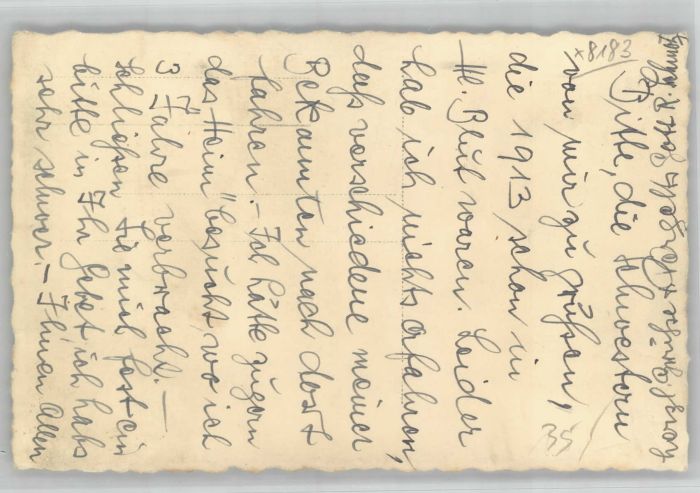 Bitte, die Schwestern
von mir zu grüßen,
die 1913 schon in
Hl. Blut waren. Leider
hab ich nichts erfahren,
daß verschiedene meiner
Bekannten nach dort
fahren. – Ich hätte zu gern
das Heim "besucht, wo ich
3 Jahre verbracht. –
Schließen Sie mich fest ein
bitte in Ihr Gebet ich habs
sehr schwer. – Ihnen allen
x8183
35/